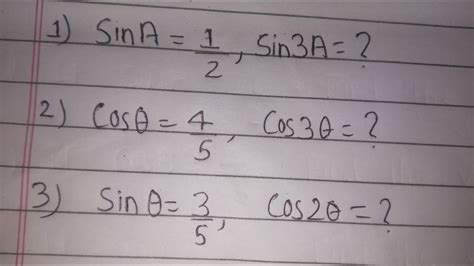 1) SinA = 1/2, Sin3A = ?
2) Cosθ = 4/5, Cos3θ = ?
3) Sinθ = 3/5, Cos2θ = ?